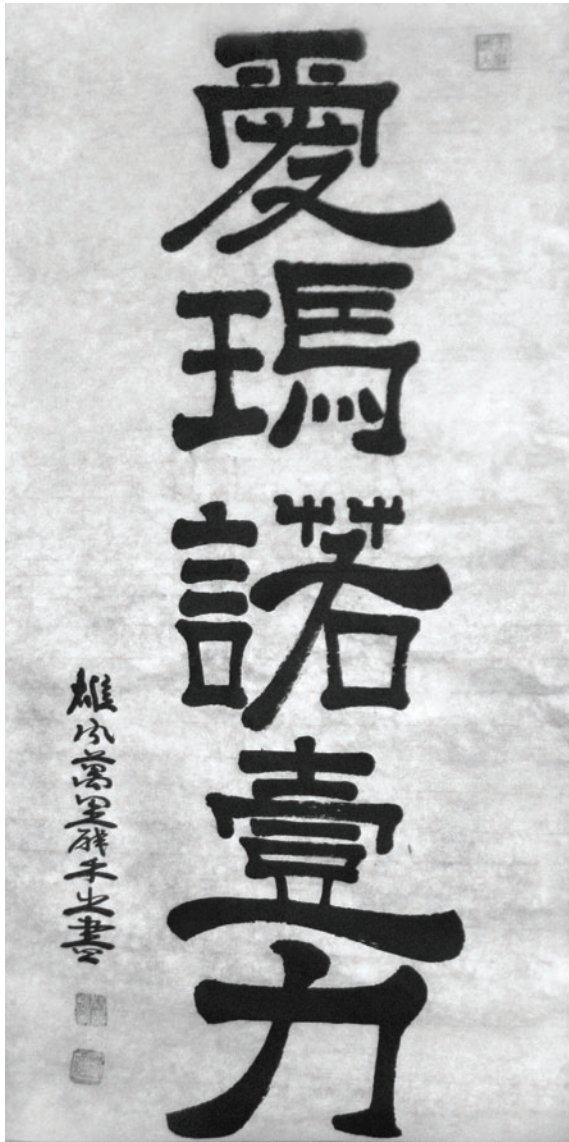 愛瑪諾壹力
雄風萬里之書